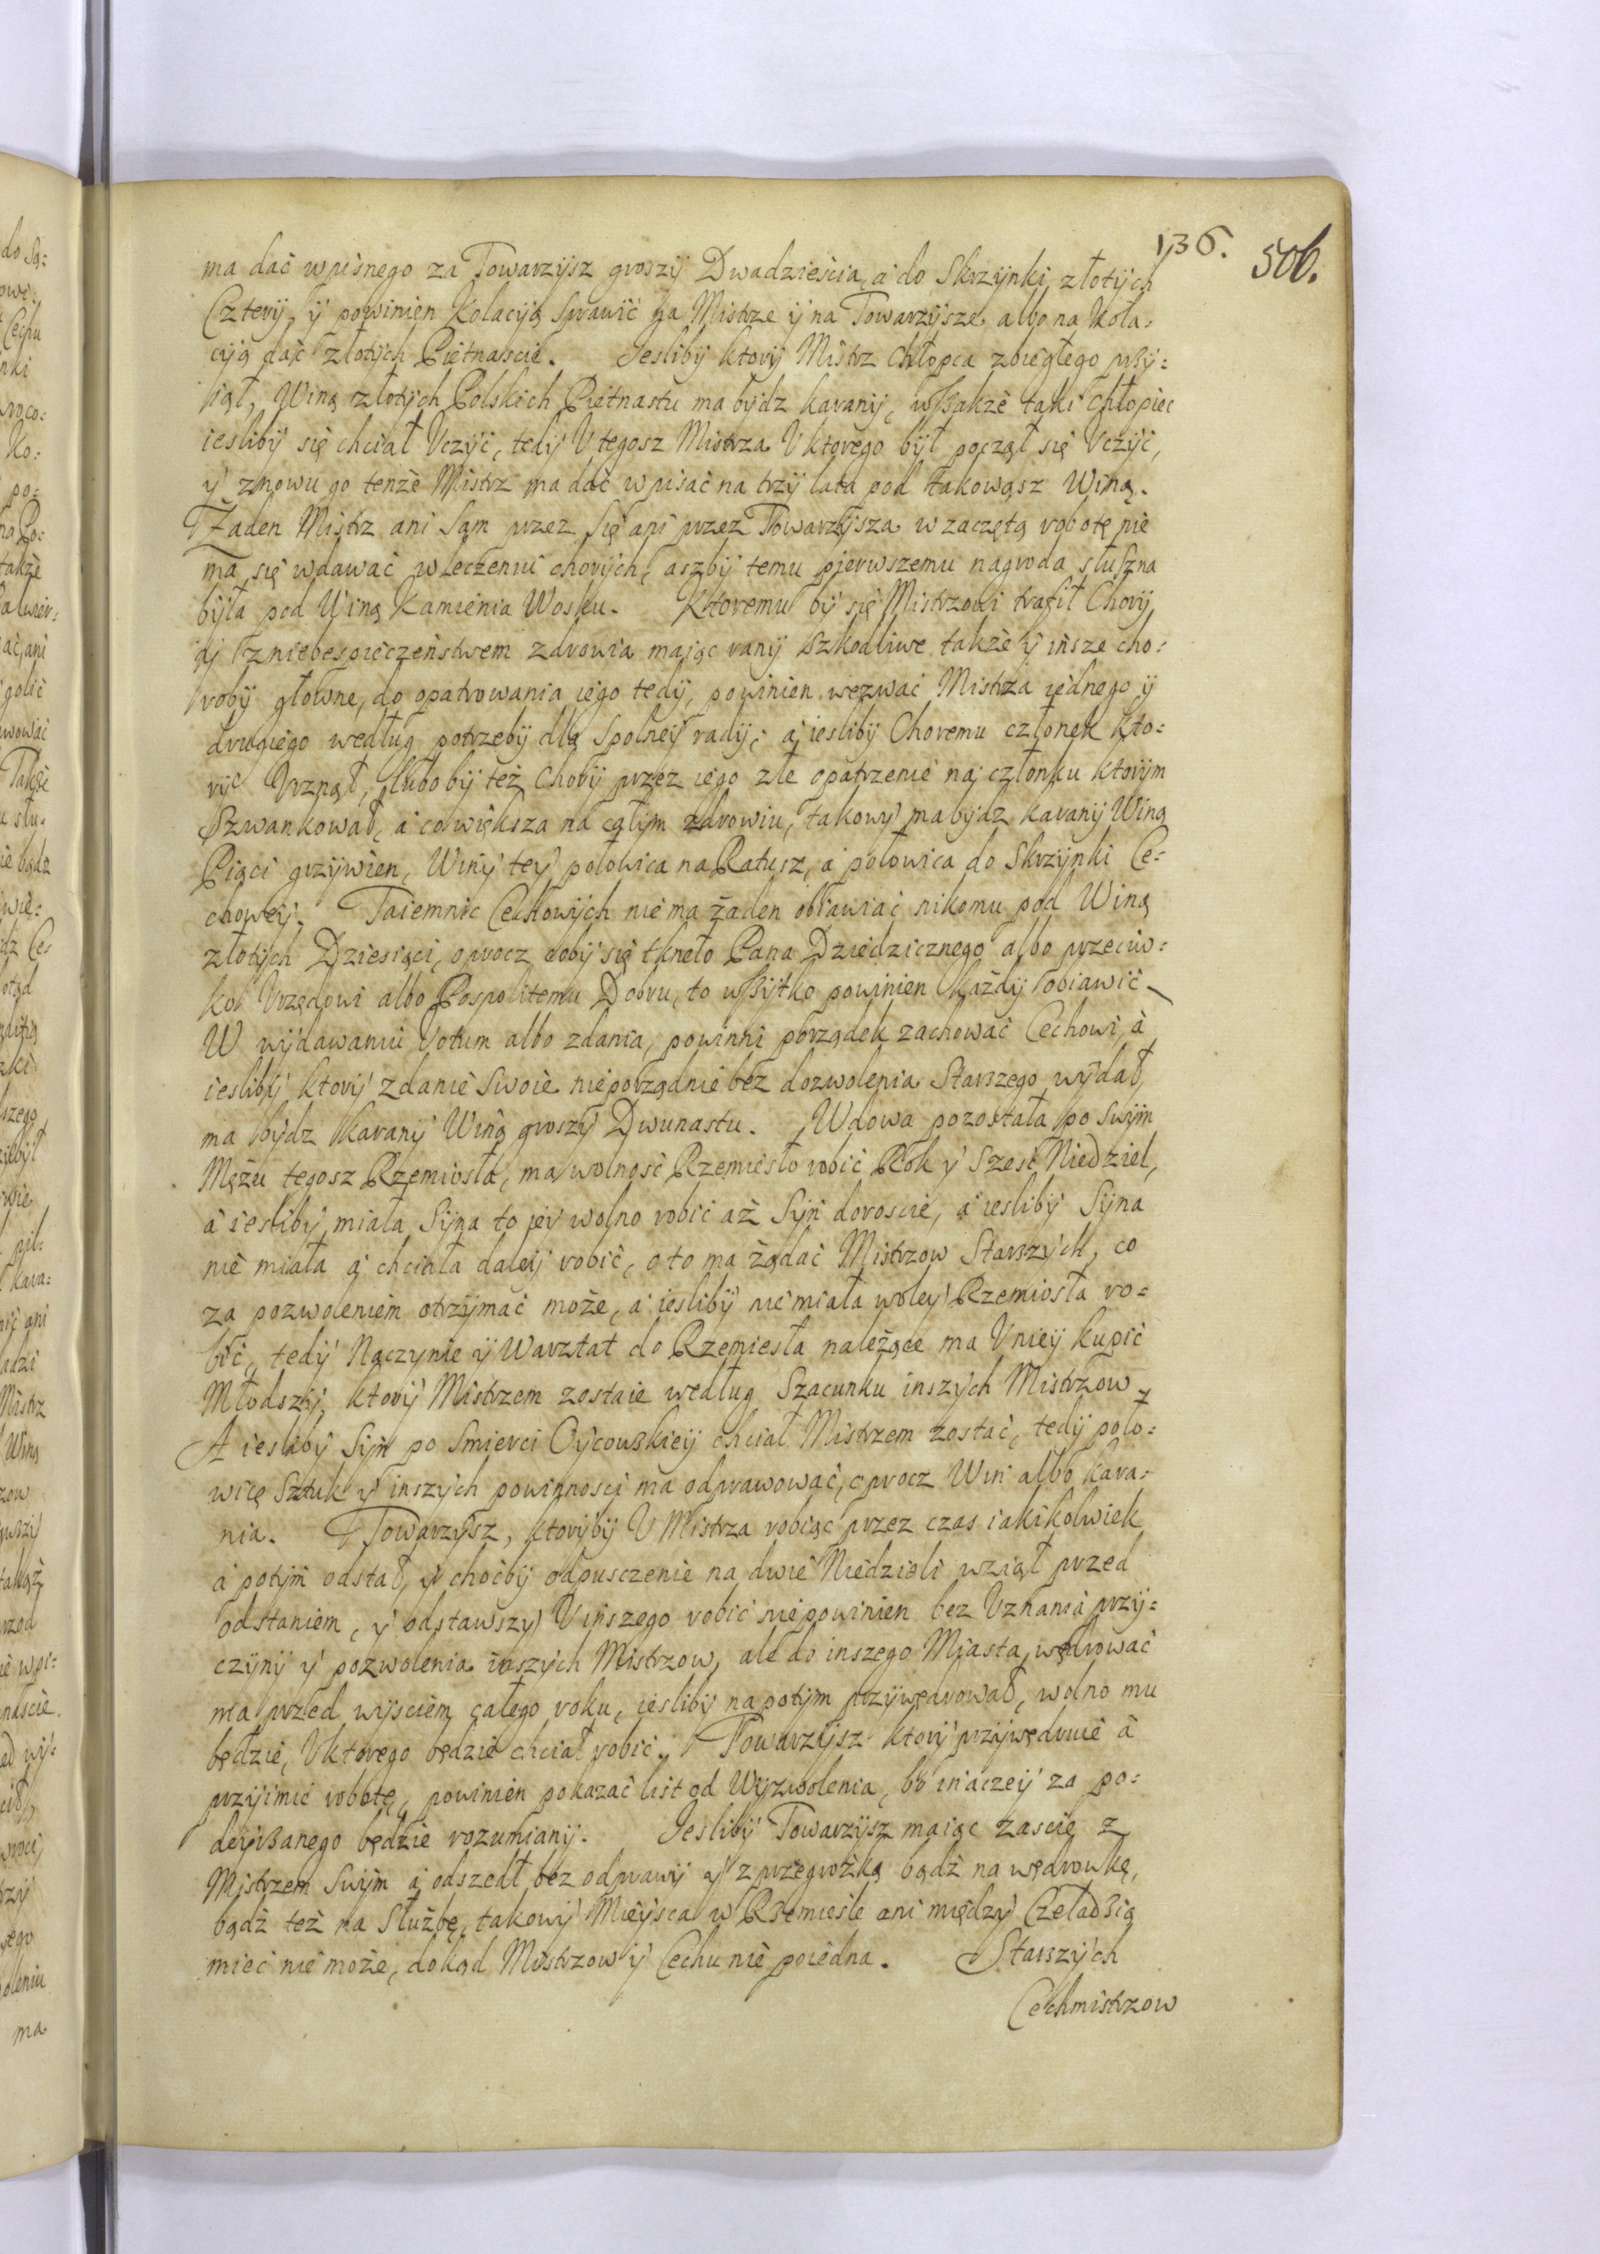 136. 506.
ma dać wpisnego za Towarzysz groszy Dwadzieścia, a do Skrzynki złotych
Cztery, y powinien Kolacyą Sprawić na Mistrze y na Towarzysze, albo na Kola-
cyą dać złotych Piętnascie. Iesliby ktory Mistrz chłopca zbiegłego przy-
iął, Winą złotych Polskich Piętnastu ma bydz karany, wszakże taki chłopiec
iesliby się chciał Uczyć, tedy U tegosz Mistrza U ktorego był począł się Uczyć,
y znowu go tenże Mistrz ma dać wpisać na trzy lata pod takowąsz Winą.
Żaden Mistrz ani Sam przez Się ani przez Towarzysza w zaczętą robotę nie
ma się wdawać w leczeniu chorych, aszby temu pierwszemu nagroda słuszna
była pod Winą Kamienia Wosku. Ktoremu by się Mistrzowi trafił Chory
z niebespieczeństwem zdrowia mając rany szkodliwe, także y insze cho-
roby głowne, do opatrowania iego tedy, powinien wezwać Mistrza iednego y
drugiego według potrzeby dla Spolney rady; a iesliby Choremu członek kto-
ry Urznął, lubo by też Chory przez iego złe opatrzenie na członku ktorym
Szwankował, a co większa na całym zdrowiu, takowy ma bydz karany Winą
Piąci grzywien, Winy tey połowica na Ratusz, a połowica do Skrzynki Ce-
chowey. Taiemnic Cechowych nie ma żaden obiawiać nikomu pod Winą
złotych Dziesiąci, oprocz coby się tkneło Pana Dziedzicznego albo przeciw-
ko Urzędowi albo Pospolitemu Dobru, to wszytko powinien każdy obiawić
W wydawaniu Votum albo zdania, powinni porządek zachować Cechowi, a
iesliby ktory zdanie Swoie nieporządnie bez dozwolenia Starszego wydał,
ma bydz karany Winą groszy Dwunastu. Wdowa pozostała po swym
Mężu tegosz Rzemiosła, ma wolność Rzemiesło robić Rok y Szesć Niedziel,
a iesliby miała Syna to iey wolno robić aż Syn doroscie, a iesliby Syna
nie miała a chciała daley robić, o to ma żądać Mistrzow Starszych, co
za pozwoleniem otrzymać może, a iesliby nie miała woley Rzemiosła ro-
bić, tedy Naczynie y Warztat do Rzemiesła należące ma U niey kupić
Młodszy, ktory Mistrzem zostaie według Szacunku inszych Mistrzow
A iesliby Syn po Smierci Oycowskiey chciał Mistrzem zostać, tedy poło-
wicę Sztuk y inszych powinnosci ma odprawować, oprocz Win albo kara-
nia. Towarzysz, ktoryby U Mistrza robiąc przez czas iakikolwiek
a potym odstał, y choćby odpusczenie na dwie Niedzieli wziął przed
odstaniem, y odstawszy U inszego robić nie powinien bez Uznania przy-
czyny y pozwolenia inszych Mistrzow, ale do inszego Miasta wędrować
ma przed wyściem całego roku, iesliby na potym przywędrował, wolno mu
będzie, U ktorego będzie chciał robić. Towarzysz ktory przywędruie a
przyimie robotę, powinien pokazać list od Wyzwolenia, bo inaczey za po-
deyrzanego będzie rozumiany. Iesliby Towarzysz maiąc zascie z
Mistrzem Swym a odszedł bez odprawy y z przegrożką bądź na wędrowkę,
bądź też na Służbę, takowy Mieysca w Rzemieśle ani między Czeladzią
mieć nie może, dokąd Mistrzow y Cechu nie poiedna. Starszych
Cechmistrzow